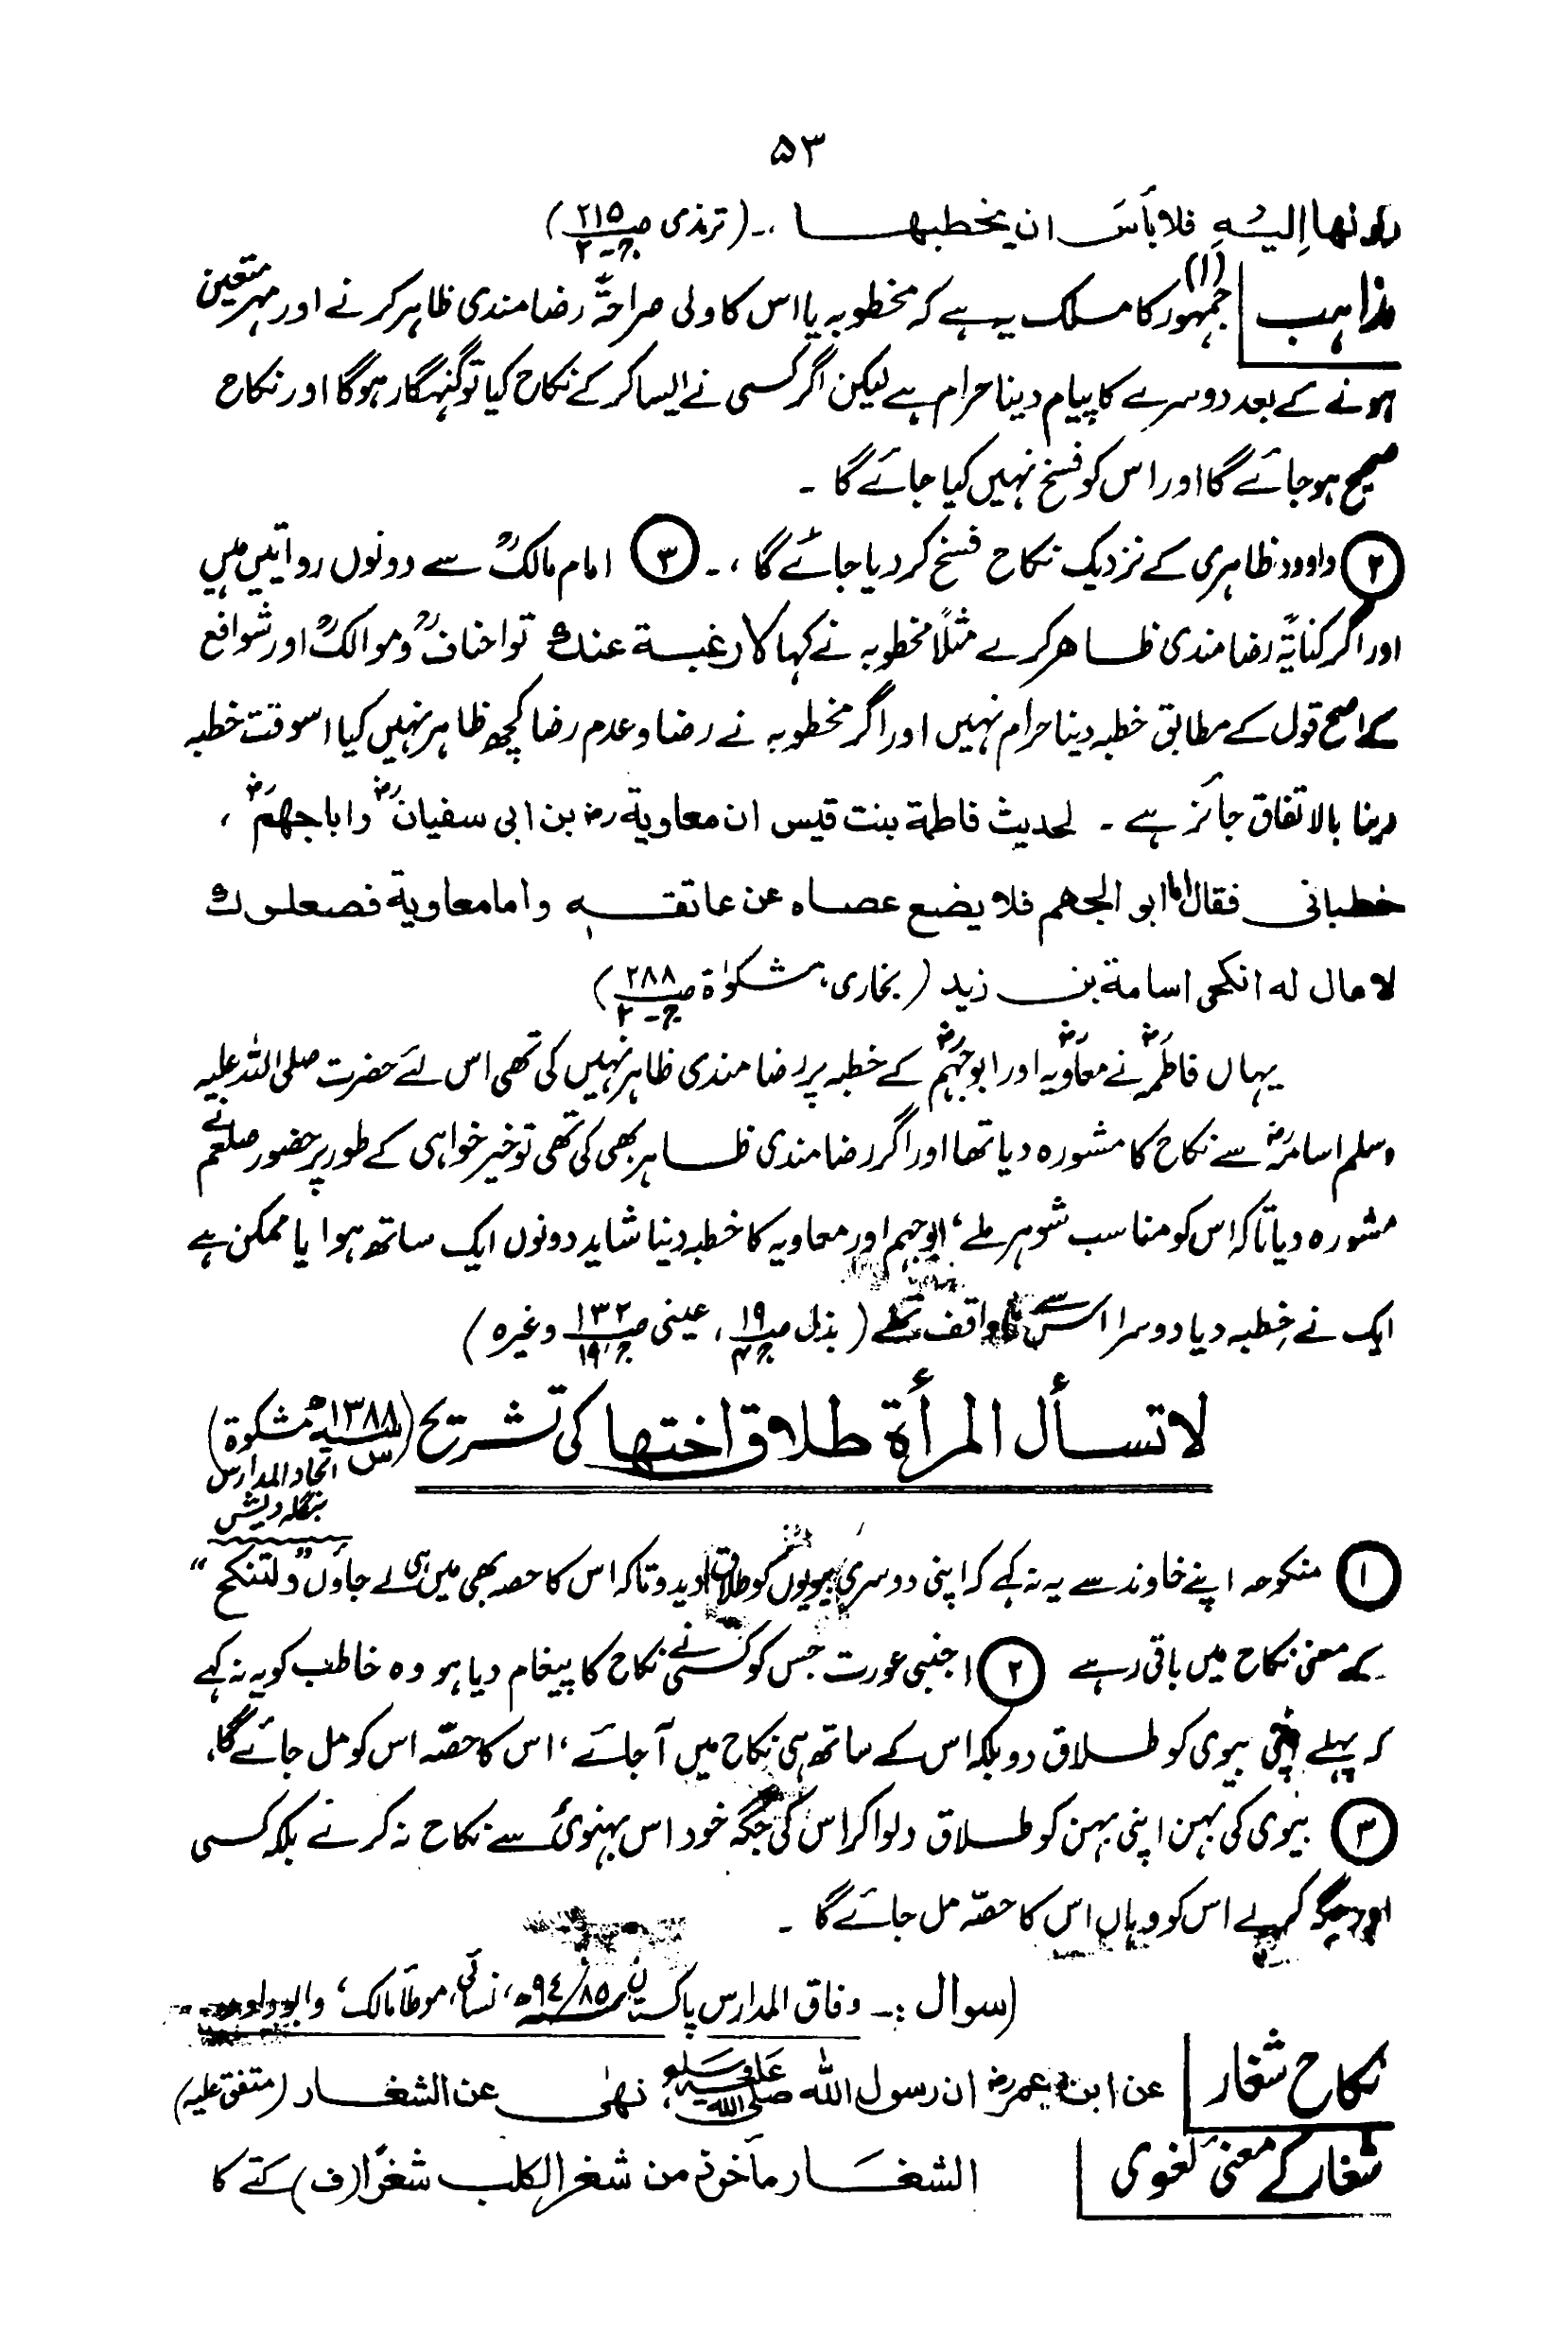 ۵۳
رکونھا اِلیہِ فلا بأسَ ان یخطبھا ،۔ (ترمذی صـ۲۱۵ جـ۲)
مذاہب (۱) جمہور کا مسلک یہ ہے کہ مخطوبہ یا اس کا ولی صراحۃً رضامندی ظاہر کرنے اور مہر متعین
ہونے کے بعد دوسرے کا پیام دینا حرام ہے لیکن اگر کسی نے ایسا کر کے نکاح کیا تو گنہگار ہوگا اور نکاح
صحیح ہو جائے گا اور اس کو فسخ نہیں کیا جائے گا ۔
(۲) داوود ظاہری کے نزدیک نکاح فسخ کر دیا جائے گا ،۔ (۳) امام مالکؒ سے دونوں روایتیں ہیں
اور اگر کنایۃً رضامندی ظاہر کرے مثلاً مخطوبہ نے کہا لا رغبة عنك تو احنافؒ و موالکؒ اور شوافع
کے اصح قول کے مطابق خطبہ دینا حرام نہیں اور اگر مخطوبہ نے رضا و عدم رضا کچھ ظاہر نہیں کیا اسوقت خطبہ
دینا بالاتفاق جائز ہے ۔ لحدیث فاطمة بنت قیس ان معاویة رض بن ابی سفیانؓ و اباجهمؓ ،
خطبانی فقال اما ابو الجهم فلا یضع عصاه عن عاتقه و اما معاویة فصعلوك
لا مال له انکحی اسامة بن زید (بخاری، مشکوٰة صـ۲۸۸ جـ۲)
یہاں فاطمہؓ نے معاویہؓ اور ابوجہمؓ کے خطبہ پر رضامندی ظاہر نہیں کی تھی اس لئے حضرت صلی اللہ علیہ
وسلم اسامہؓ سے نکاح کا مشورہ دیا تھا اور اگر رضامندی ظاہر بھی کی تھی تو خیر خواہی کے طور پر حضور صلعم نے
مشورہ دیا تاکہ اس کو مناسب شوہر ملے، ابوجہم اور معاویہ کا خطبہ دینا شاید دونوں ایک ساتھ ہوا یا ممکن ہے
ایک نے خطبہ دیا دوسرا اس سے ناواقف تھے (بذل صـ۱۹ جـ۴، عینی صـ۱۳۲ جـ۱۹ وغیرہ)
لا تسأل المرأة طلاق اختها کی تشریح (س ۱۳۸۸ھ مشکوة)
اتحاد المدارس
بنگلہ دیش
(۱) منکوحہ اپنے خاوند سے یہ نہ کہے کہ اپنی دوسری بیویوں کو طلاق دیدو تاکہ اس کا حصہ بھی میں ہی لے جاؤں "ولتنکح"
کے معنیٰ نکاح میں باقی رہے (۲) اجنبی عورت جس کو کسی نے نکاح کا پیغام دیا ہو وہ خاطب کو یہ نہ کہے
کہ پہلے اپنی بیوی کو طلاق دو بلکہ اس کے ساتھ ہی نکاح میں آ جائے، اس کا حصّہ اس کو مل جائے گا،
(۳) بیوی کی بہن اپنی بہن کو طلاق دلوا کر اس کی جگہ خود اس بہنوئی سے نکاح نہ کرنے بلکہ کسی
اور جگہ کرلے اس کو وہاں اس کا حصّہ مل جائے گا ۔
(سوال :۔ وفاق المدارس پاکستان ۹۴/۸۵ھ، نسائی، موطأ مالک، وابوداود
نکاح شغار عن ابن عمر رض ان رسول الله صلی الله علیه وسلم نهٰی عن الشغار (متفق علیه)
شغار کے معنیٰ لغوی الشغَار مأخوذ من شغر الکلب شغرًا (ف) کتے کا